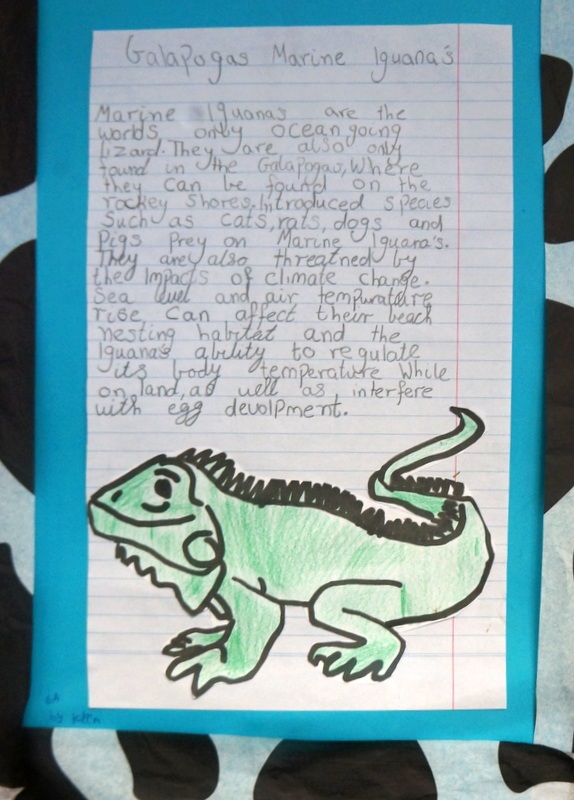 Galapogas Marine Iguana's
Marine Iguanas are the
worlds only ocean going
Lizard. They are also only
found in the Galapogas, Where
they can be found on the
rockey Shores. Introduced species
Such as cats, rats, dogs and
Pigs Prey on Marine Iguana's.
They are also threatned by
the Impacts of climate change.
Sea level and air tempurature
rise can affect their beach
nesting habitat and the
Iguana's ability to regulate
its body temperature While
on land, as well as interfere
with egg devolpment.
6A
by